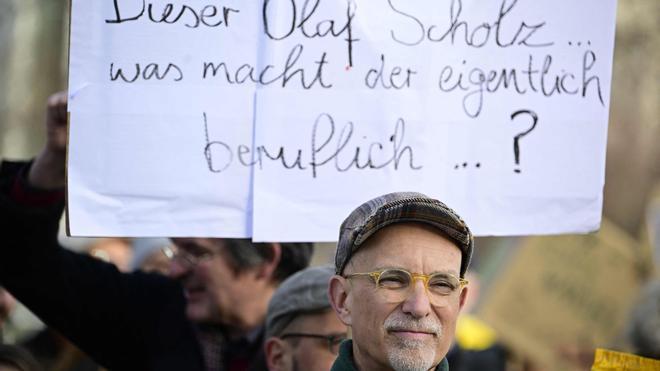 Dieser Olaf Scholz...
was macht der eigentlich
beruflich ... ?